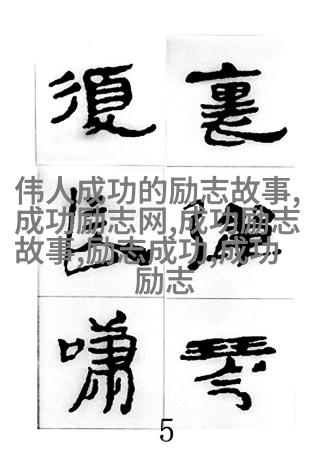 裏彈琴
復長嘯
伟人成功的励志故事,
成功励志网,成功励志
故事,励志成功,成功
励志
5